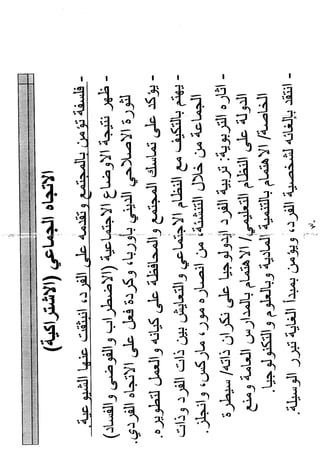 الاتجاه الجماعي (الاشتراكية)
- فلسفة تؤمن بالمجتمع وتقدمه على الفرد، انبثقت عنها الشيوعية.
- ظهر نتيجة الاوضاع الاجتماعية (الاضطراب والفوضى والفساد)
لثورة الاصلاحي الديني بأوربا، وكردة فعل على الاتجاه الفردي.
- يؤكد على تماسك المجتمع والمحافظة على كيانه والعمل لتطويره.
- يهتم بالتكيف مع النظام الاجتماعي والتعايش بين ذات الفرد وذات
الجماعة من خلال التنشئة، من انصاره مور، ماركس، وانجلز.
- اثاره التربوية: تربية الفرد ايدولوجيا على نكران ذاته/ سيطرة
الدولة على النظام التعليمي/ الاهتمام بالمدارس العامة ومنع
الخاصة/ الاهتمام بالتنمية المادية وبالعلوم والتكنولوجيا.
- انتقد بإلغائه لشخصية الفرد، ويؤمن بمبدا الغاية تبرر الوسيلة.